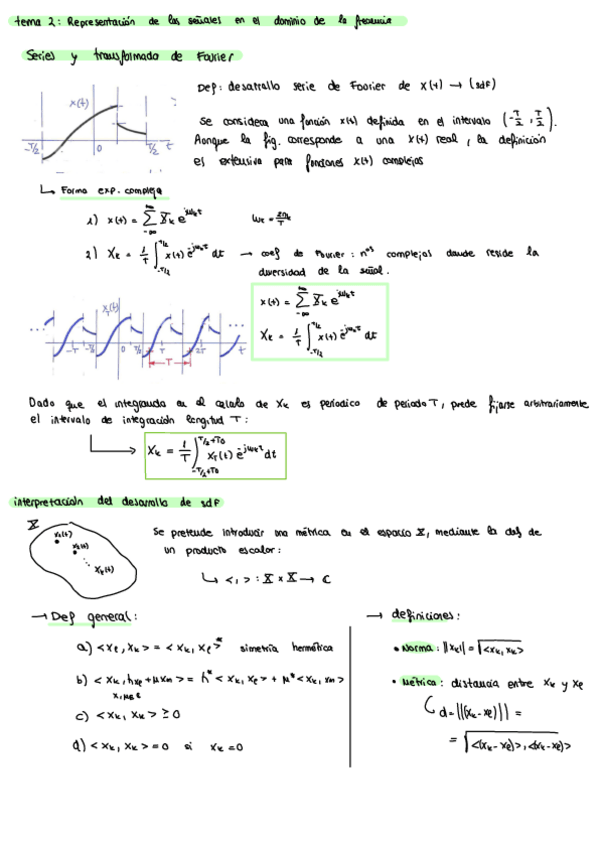 tema 2: Representación de las señales en el dominio de la frecuencia
Series y transformada de Fourier
x(t)
-T/2 0 T/2 t
Def: desarrollo serie de Fourier de x(t) → (sdF)
se considera una función x(t) definida en el intervalo (-T/2, T/2).
Aunque la fig. corresponde a una x(t) real, la definición
es extensiva para funciones x(t) complejas
↳ Forma exp. compleja
1) x(t) = ∑_{-∞}^{+∞} X_k e^{jω_k t} ω_k = 2πk/T
2) X_k = 1/T ∫_{-T/2}^{T/2} x(t) e^{-jω_k t} dt → coef de Fourier: nos complejos donde reside la
diversidad de la señal.
x(t) = ∑_{-∞}^{+∞} X_k e^{jω_k t}
X_k = 1/T ∫_{-T/2}^{T/2} x(t) e^{-jω_k t} dt
x_T(t)
-T -T/2 0 T/2 T 2T t
←T→
Dado que el integrando en el calculo de X_k es periodico de periodo T, puede fijarse arbitrariamente
el intervalo de integración longitud T:
X_k = 1/T ∫_{-T/2+T0}^{T/2+T0} x_T(t) e^{-jω_k t} dt
interpretación del desarrollo de sdF
X
x_1(t)
x_2(t)
x_k(t)
Se pretende introducir una métrica en el espacio X, mediante la def de
un producto escalar:
↳ < , > : X × X → C
→ Def general:
a) <x_l, x_k> = <x_k, x_l>* simetría hermética
b) <x_k, λx_l + μx_m> = λ* <x_k, x_l> + μ* <x_k, x_m>
c) <x_k, x_k> ≥ 0
d) <x_k, x_k> = 0 si x_k = 0
→ definiciones:
• Norma: ||x_k|| = √<x_k, x_k>
• Métrica: distancia entre x_k y x_l
d = ||(x_k - x_l)|| =
= √<(x_k - x_l)>, <(x_k - x_l)>